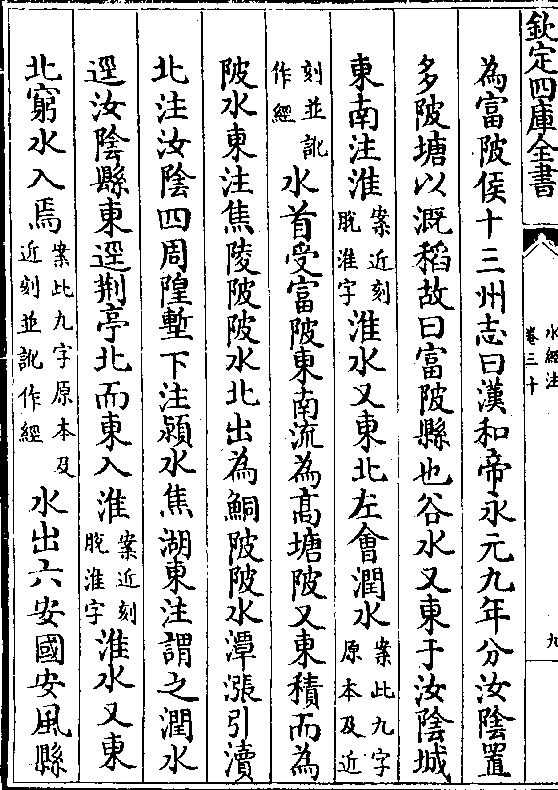 欽定四庫全書
水經注
卷三十
九
為富陂侯十三州志曰漢和帝永元九年分汝陰置
多陂塘以溉稻故曰富陂縣也谷水又東于汝陰城
東南注淮案近刻脫淮字淮水又東北左會潤水案此九字原本及近
刻並訛作經水首受富陂東南流為高塘陂又東積而為
陂水東注焦陵陂陂水北出為鮦陂陂水潭漲引瀆
北注汝陰四周隍塹下注潁水焦湖東注謂之潤水
逕汝陰縣東逕荆亭北而東入淮案近刻脫淮字淮水又東
北窮水入焉案此九字原本及近刻並訛作經水出六安國安風縣